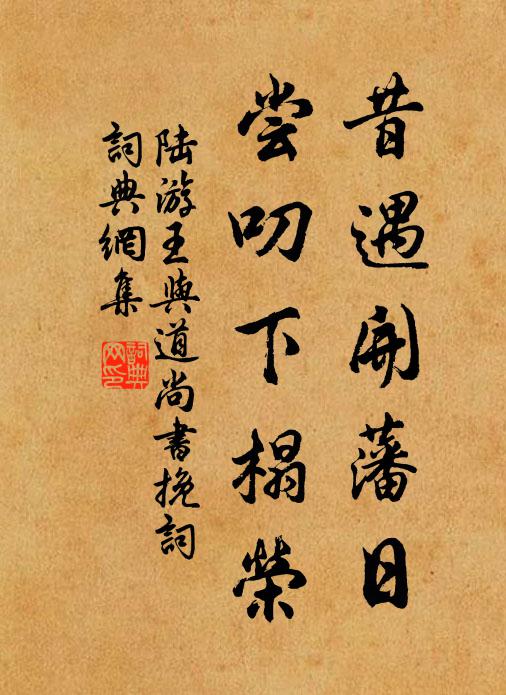 昔遇開藩日
尝叨下榻榮
陆游王與道尚書挽詞
詞典網集
詞典网印